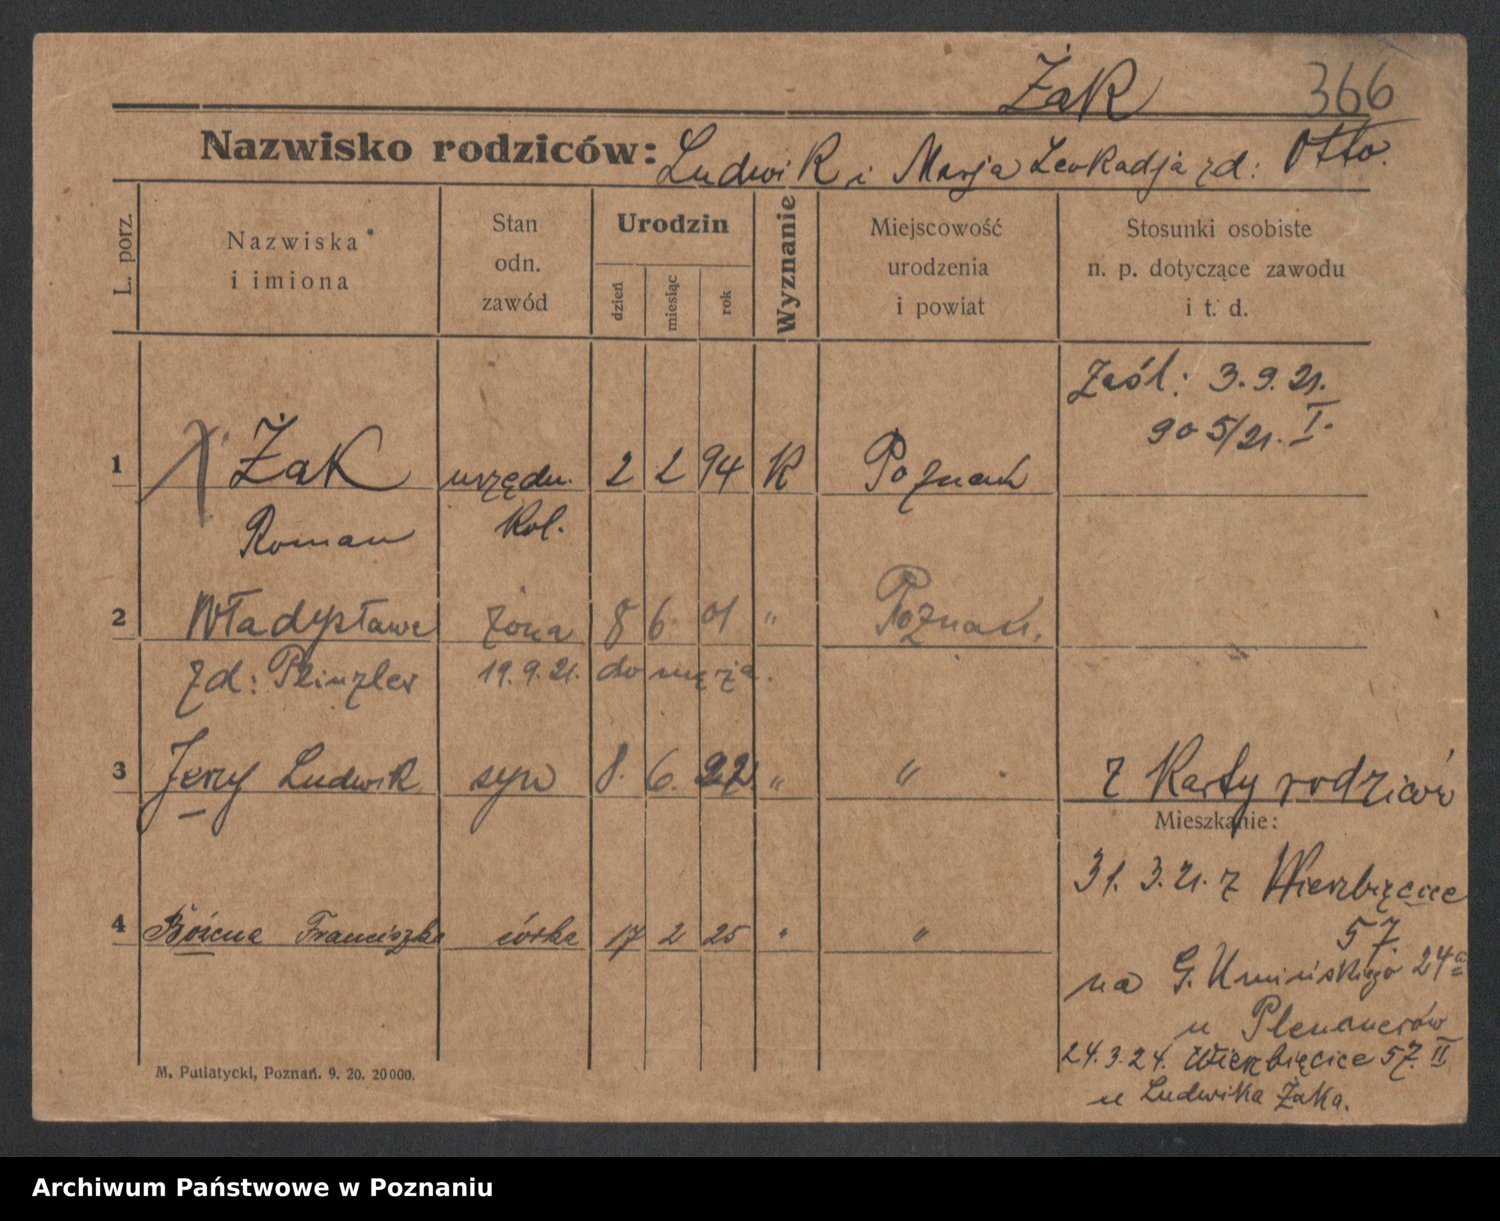 Żak 366
Nazwisko rodziców: Ludwik i Marja Leokadja zd: Otto.
L. porz.
Nazwiska
i imiona
Stan
odn.
zawód
Urodzin
dzień
miesiąc
rok
Wyznanie
Miejscowość
urodzenia
i powiat
Stosunki osobiste
n. p. dotyczące zawodu
i t. d.
Zaśl: 3.9.21.
905/21. I.
1 Żak urzędn. 2 2 94 K Poznań
Roman kol.
2 Władysława żona 8 6 01 " Poznań.
zd: Plinzler 19.9.21. do męża.
3 Jerzy Ludwik syn 8. 6. 22 " "
z Karty rodziców
Mieszkanie:
31. 3. 21. z Wierzbięcice
57.
4 Bożena Franciszka córka 17 2 25 " "
na G. Umińskiego 24a
u Plenanerów
24.3.24. Wierzbięcice 57. II
u Ludwika Żaka.
M. Putiatycki, Poznań. 9. 20. 20000.
Archiwum Państwowe w Poznaniu